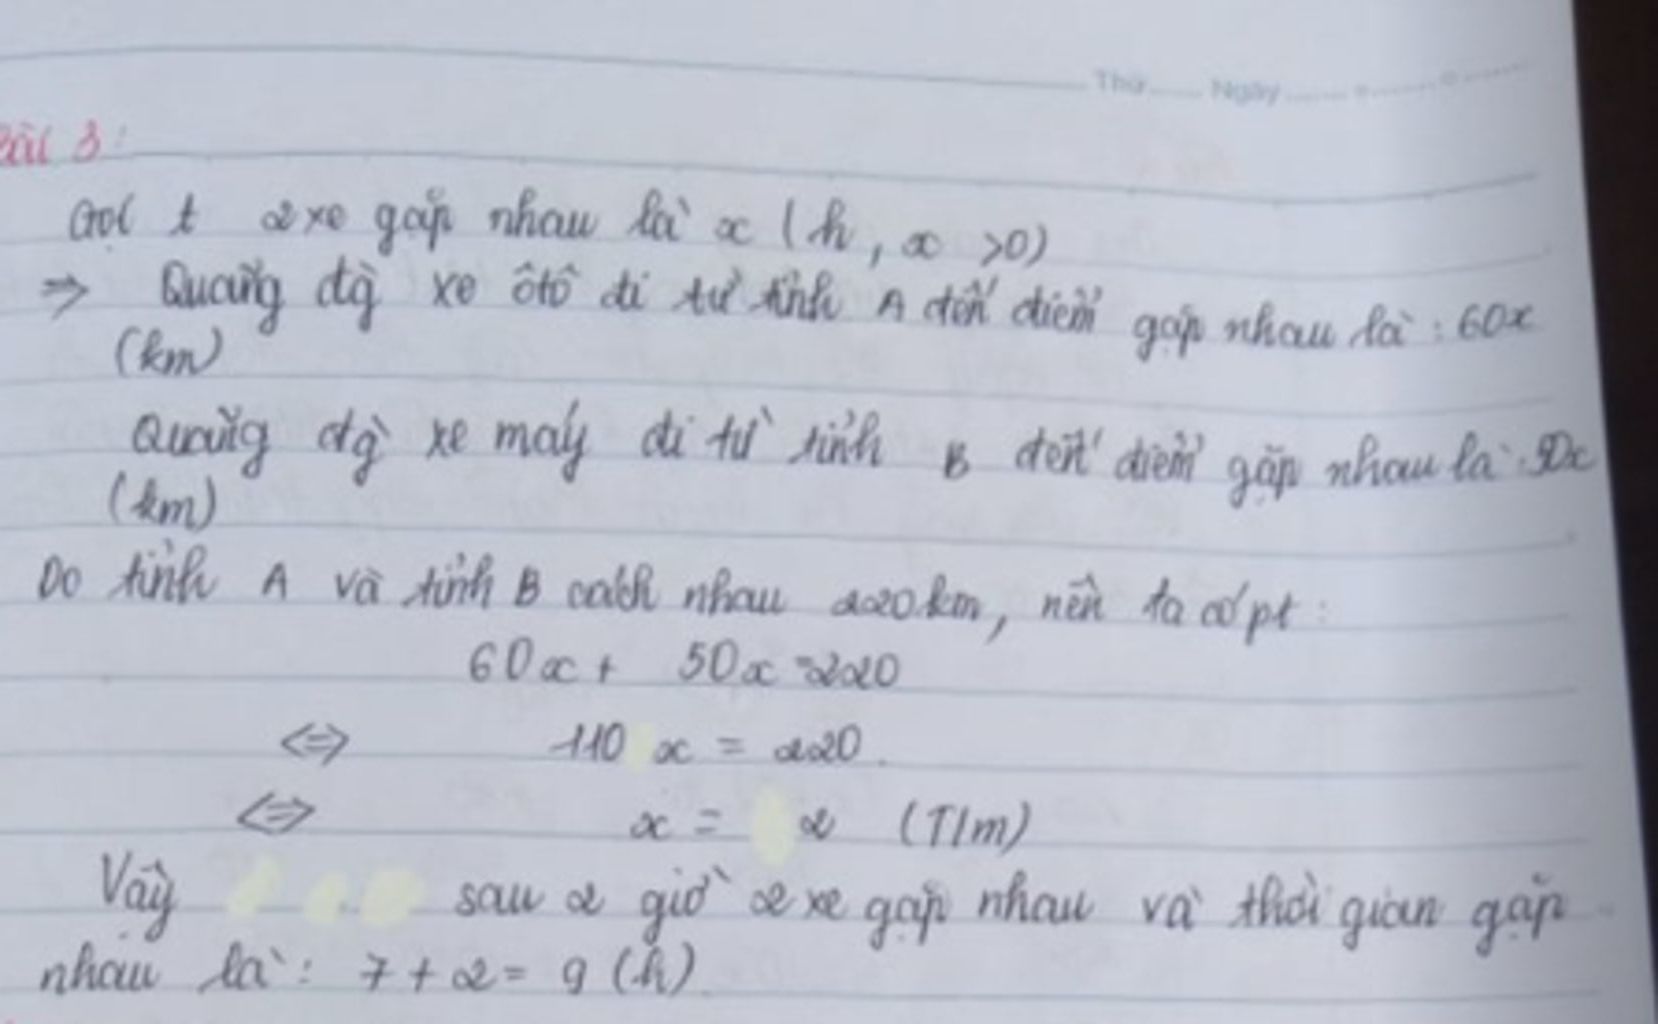 Thứ Ngày
Bài 3:
Gọi t 2 xe gặp nhau là x (h, x >0)
=> Quãng đg xe ôtô đi từ tỉnh A đến điểm gặp nhau là : 60x
(km)
Quãng đg xe máy đi từ tỉnh B đến điểm gặp nhau là : 50x
(km)
Do tỉnh A và tỉnh B cách nhau 220km, nên ta có pt :
60x + 50x = 220
<=> 110 x = 220.
<=> x = 2 (T/m)
Vậy sau 2 giờ 2 xe gặp nhau và thời gian gặp
nhau là : 7 + 2 = 9 (h)